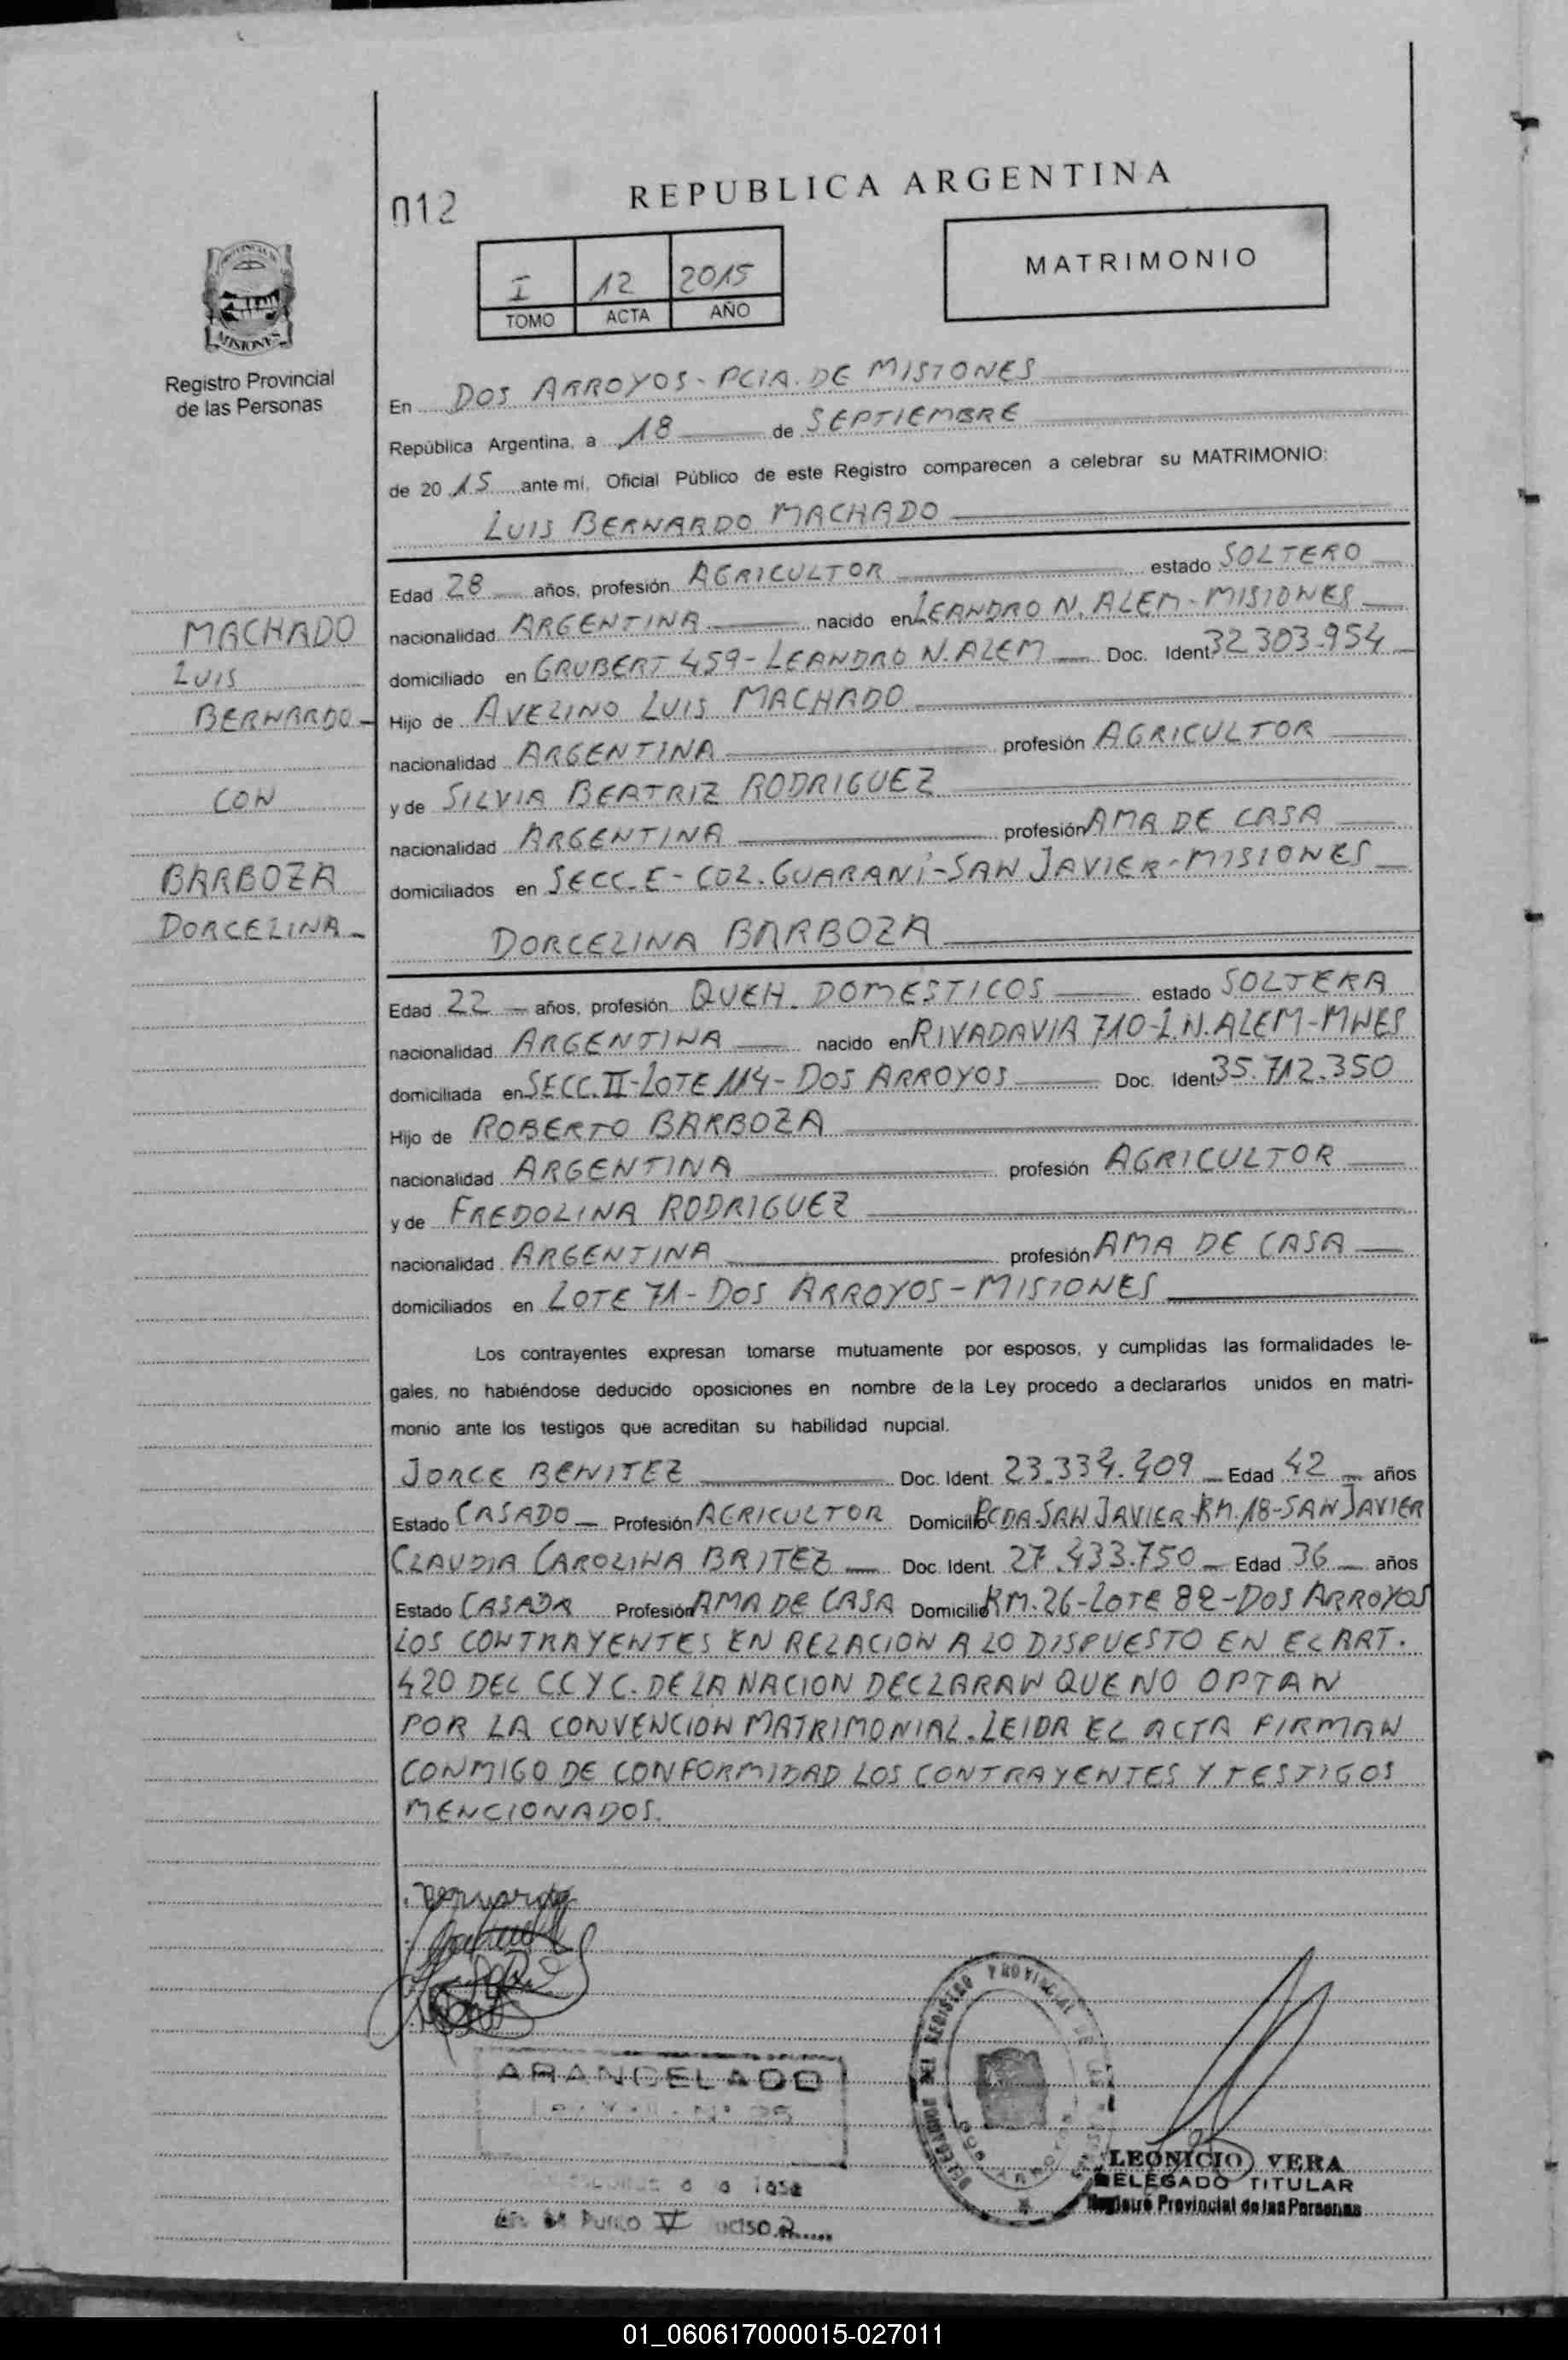 012
REPUBLICA ARGENTINA
I 12 2015
TOMO ACTA AÑO
MATRIMONIO
MISIONES
Registro Provincial
de las Personas
En DOS ARROYOS - PCIA. DE MISIONES
República Argentina, a 18 de SEPTIEMBRE
de 20 15 ante mi, Oficial Público de este Registro comparecen a celebrar su MATRIMONIO:
LUIS BERNARDO MACHADO
Edad 28 años, profesión AGRICULTOR estado SOLTERO
nacionalidad ARGENTINA nacido en LEANDRO N. ALEM - MISIONES
domiciliado en GRUBERT 459 - LEANDRO N. ALEM Doc. Ident 32 303.954
Hijo de AVELINO LUIS MACHADO
nacionalidad ARGENTINA profesión AGRICULTOR
y de SILVIA BEATRIZ RODRIGUEZ
nacionalidad ARGENTINA profesión AMA DE CASA
domiciliados en SECC. E - COL. GUARANÍ - SAN JAVIER - MISIONES
MACHADO
LUIS
BERNARDO -
CON
BARBOZA
DORCELINA -
DORCELINA BARBOZA
Edad 22 años, profesión QUEH. DOMESTICOS estado SOLTERA
nacionalidad ARGENTINA nacido en RIVADAVIA 710 - L.N. ALEM - MNES
domiciliada en SECC. II - LOTE 114 - DOS ARROYOS Doc. Ident 35.712.350
Hijo de ROBERTO BARBOZA
nacionalidad ARGENTINA profesión AGRICULTOR
y de FREDOLINA RODRIGUEZ
nacionalidad ARGENTINA profesión AMA DE CASA
domiciliados en LOTE 71 - DOS ARROYOS - MISIONES
Los contrayentes expresan tomarse mutuamente por esposos, y cumplidas las formalidades le-
gales, no habiéndose deducido oposiciones en nombre de la Ley procedo a declararlos unidos en matri-
monio ante los testigos que acreditan su habilidad nupcial.
JORGE BENITEZ Doc. Ident. 23.334.409 Edad 42 años
Estado CASADO Profesión AGRICULTOR Domicilio PCDA. SAN JAVIER - KM. 18 - SAN JAVIER
CLAUDIA CAROLINA BRITEZ Doc. Ident. 27.433.750 Edad 36 años
Estado CASADA Profesión AMA DE CASA Domicilio KM. 26 - LOTE 82 - DOS ARROYOS
LOS CONTRAYENTES EN RELACION A LO DISPUESTO EN EL ART.
420 DEL CC Y C. DE LA NACION DECLARAN QUE NO OPTAN
POR LA CONVENCION MATRIMONIAL. LEIDA EL ACTA FIRMAN
CONMIGO DE CONFORMIDAD LOS CONTRAYENTES Y TESTIGOS
MENCIONADOS.
ARANCELADO
REGISTRO PROVINCIAL DE
LEONICIO VERA
DELEGADO TITULAR
Registro Provincial de las Personas
01_060617000015-027011